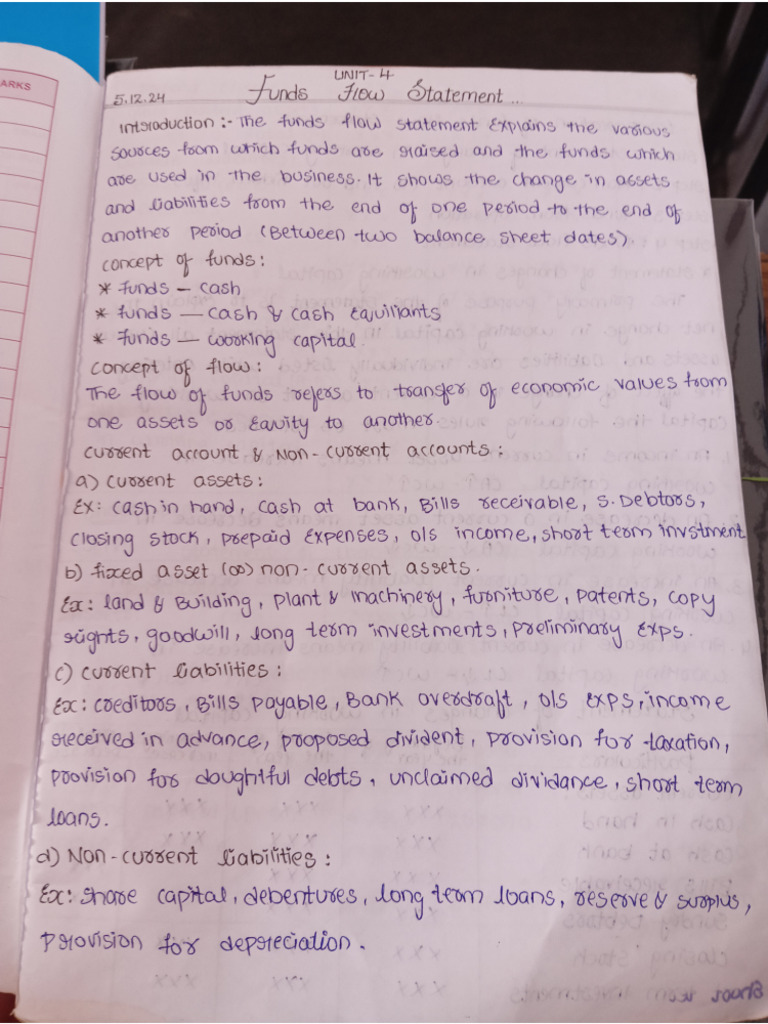 ARKS
UNIT-4
5.12.24 Funds Flow Statement...
Introduction:- The funds flow statement Explains the various
sources from which funds are raised and the funds which
are used in the business. It shows the change in assets
and liabilities from the end of one period to the end of
another period (Between two balance sheet dates)
concept of funds:
* funds - cash
* funds — cash & cash Equillants
* funds — working capital.
concept of flow:
The flow of funds refers to transfer of economic values from
one assets or Equity to another
current account & Non-current accounts:
a) current assets:
Ex: cash in hand, cash at bank, Bills receivable, S. Debtors,
closing stock, prepaid Expenses, o/s income, short term invstment
b) fixed asset (or) non-current assets.
Ex: land & Building, plant & machinery, furniture, patents, copy
rights, goodwill, long term investments, preliminary Exps.
c) current liabilities:
Ex: creditors, Bills payable, Bank overdraft, o/s exps, income
received in advance, proposed divident, provision for taxation,
provision for doughtful debts, unclaimed dividance, short term
loans.
d) Non-current liabilities:
Ex: share capital, debentures, long term loans, reserve & surplus,
provision for depreciation.